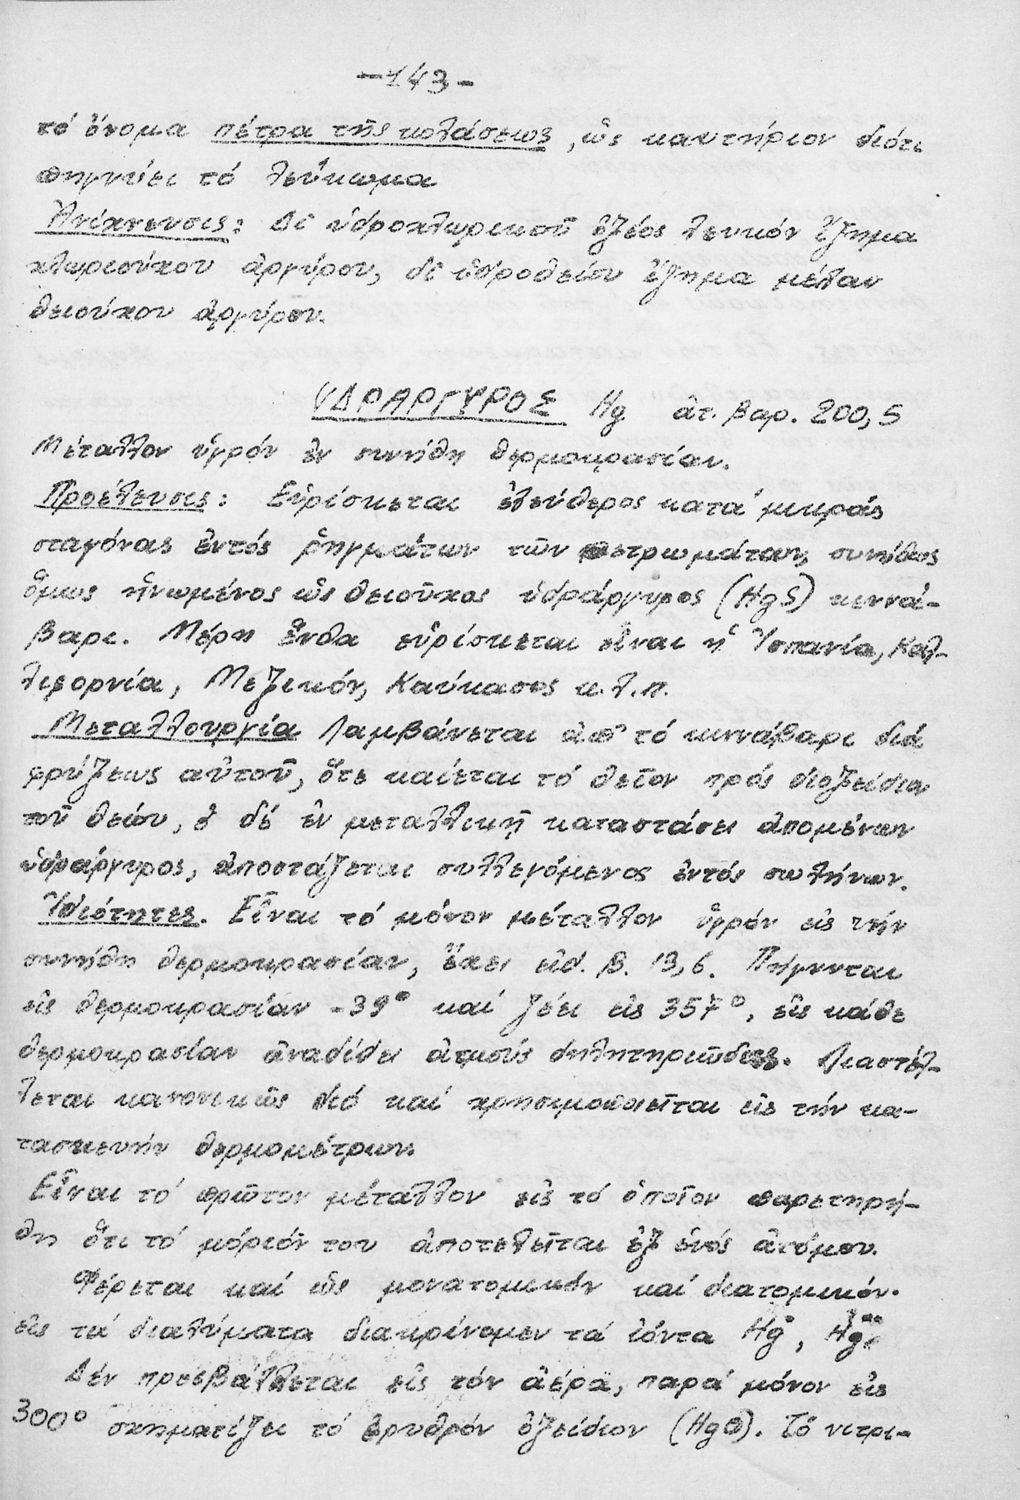 -143-
τό ὄνομα πέτρα τῆς κολάσεως, ὡς καυτήριον διότι
πηγνύει τό λεύκωμα
Ἀνίχνευσις: Δι' ὑδροχλωρικοῦ ὀξέος λευκόν ἵζημα
χλωριούχου ἀργύρου, δι' ὑδροθείου ἵζημα μέλαν
θειούχου ἀργύρου.
ὙΔΡΑΡΓΥΡΟΣ Hg ἀτ. βαρ. 200,5
Μέταλλον ὑγρόν ἐν συνήθη θερμοκρασίαν.
Προέλευσις: Εὑρίσκεται ἐλεύθερος κατά μικράς
σταγόνας ἐντός ῥηγμάτων τῶν πετρωμάτων, συνήθως
ὅμως ἡνωμένος ὡς θειοῦχος ὑδράργυρος (HgS) κιννά-
βαρι. Μέρη ἔνθα εὑρίσκεται εἶναι ἡ Ἱσπανία, Καλ-
λιφορνία, Μεξικόν, Καύκασος κ.λ.π.
Μεταλλουργία Λαμβάνεται ἀπ' τό κιννάβαρι διά
φρύξεως αὐτοῦ, ὅτε καίεται τό θεῖον πρός διοξείδιον
τοῦ θείου, ὁ δέ ἐν μεταλλικῇ καταστάσει ἀπομένων
ὑδράργυρος, ἀποστάζεται συλλεγόμενος ἐντός σωλήνων.
Ἰδιότητες. Εἶναι τό μόνον μέταλλον ὑγρόν εἰς τήν
συνήθη θερμοκρασίαν, ἔχει εἰδ. β. 13,6. Πήγνυται
εἰς θερμοκρασίαν -39° καί ζέει εἰς 357°, εἰς κάθε
θερμοκρασίαν ἀναδίδει ἀτμούς δηλητηριώδεις. Διαστέλ-
λεται κανονικῶς διό καί χρησιμοποιεῖται εἰς τήν κα-
τασκευήν θερμομέτρων.
Εἶναι τό πρῶτον μέταλλον εἰς τό ὁποῖον παρετηρή-
θη ὅτι τό μόριόν του ἀποτελεῖται ἐξ ἑνός ἀτόμου.
Φέρεται καί ὡς μονατομικόν καί διατομικόν.
εἰς τά διαλύματα διακρίνομεν τά ἰόντα Hg, Hg
Δέν προσβάλλεται εἰς τόν ἀέρα, παρά μόνον εἰς
300° σχηματίζει τό ἐρυθρόν ὀξείδιον (HgO). Τό νιτρι-